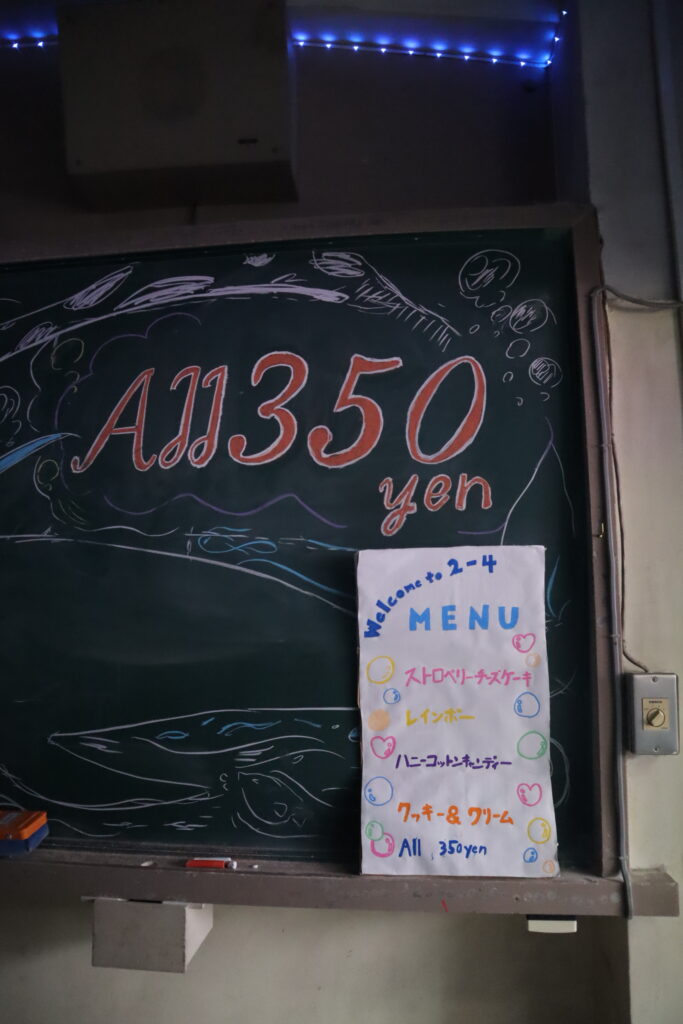 All 350
yen
Welcome to 2-4
MENU
ストロベリーチーズケーキ
レインボー
ハニーコットンキャンディー
クッキー&クリーム
All 350yen